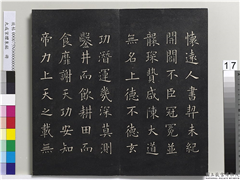 懷遠人書契未紀
開闢不臣冠冕並
襲琛贄咸陳大道
無名上德不德玄
功潛運幾深莫測
鑿井而飲耕田而
食靡謝天功安知
帝力上天之載無
17